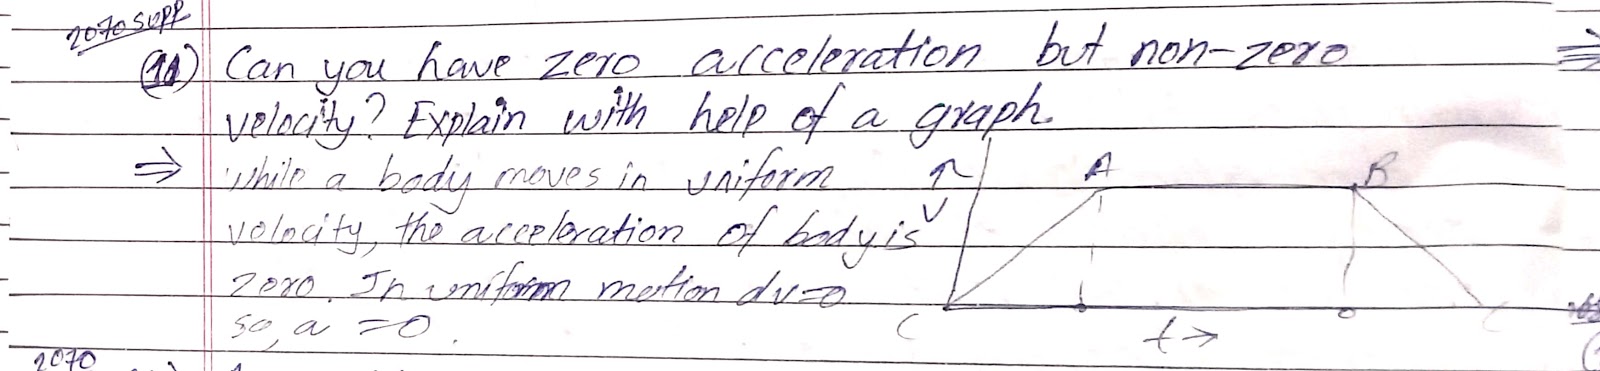 2070 supp
(11) Can you have zero acceleration but non-zero ⇒
velocity? Explain with help of a graph.
⇒ while a body moves in uniform
velocity, the acceleration of body is
zero. In uniform motion dv=0
so, a =0.
↑ A B
v
C t→ C
2070